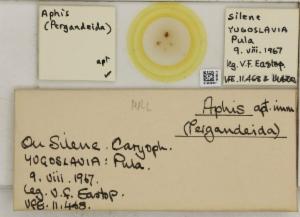 Aphis
(Pergandeida)
apt
Silene
YUGOSLAVIA
Pula
9. viii. 1967
leg. V.F. Eastop.
VFE 11.468
Aphis apt. imm
(Pergandeida)
On Silene. Caryoph.
YUGOSLAVIA: Pula.
9. viii. 1967.
leg. V.F. Eastop.
VFE. 11.468.